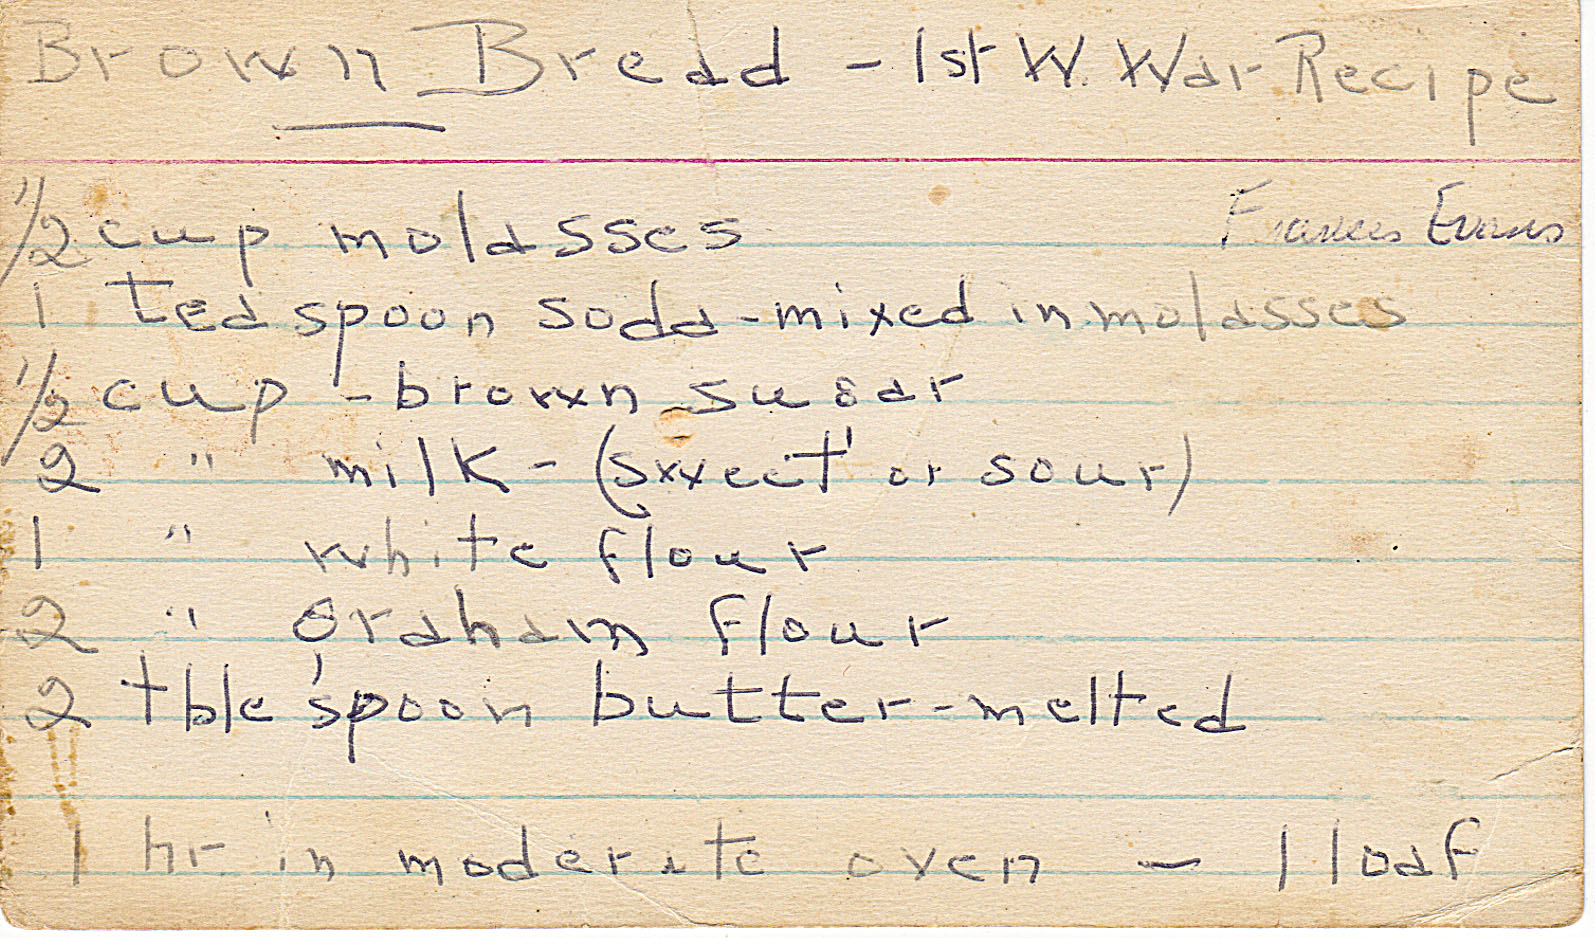 Brown Bread - 1st W. War Recipe
Frances Evans
1/2 cup molasses
1 teaspoon soda - mixed in molasses
1/2 cup - brown sugar
2 " milk - (sweet or sour)
1 " white flour
2 " Graham flour
2 tble spoon butter - melted
1 hr in moderate oven - 1 loaf